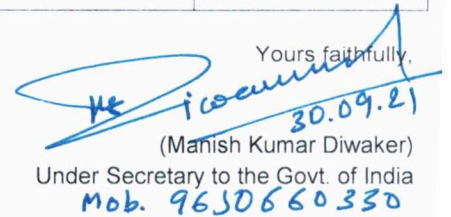 Yours faithfully,
30.09.21
(Manish Kumar Diwaker)
Under Secretary to the Govt. of India
Mob. 9650660330